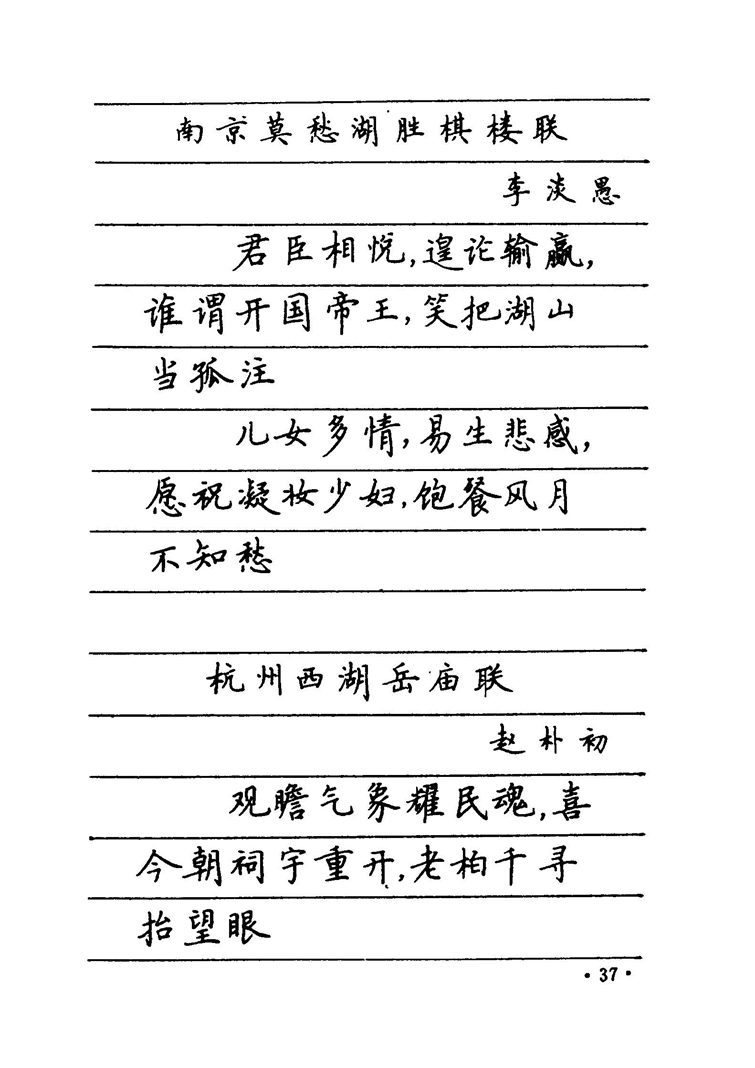 南京莫愁湖胜棋楼联
李淡愚
君臣相悦,遑论输赢,
谁谓开国帝王,笑把湖山
当孤注
儿女多情,易生悲感,
愿祝凝妆少妇,饱餐风月
不知愁
杭州西湖岳庙联
赵朴初
观瞻气象耀民魂,喜
今朝祠宇重开,老柏千寻
抬望眼
·37·